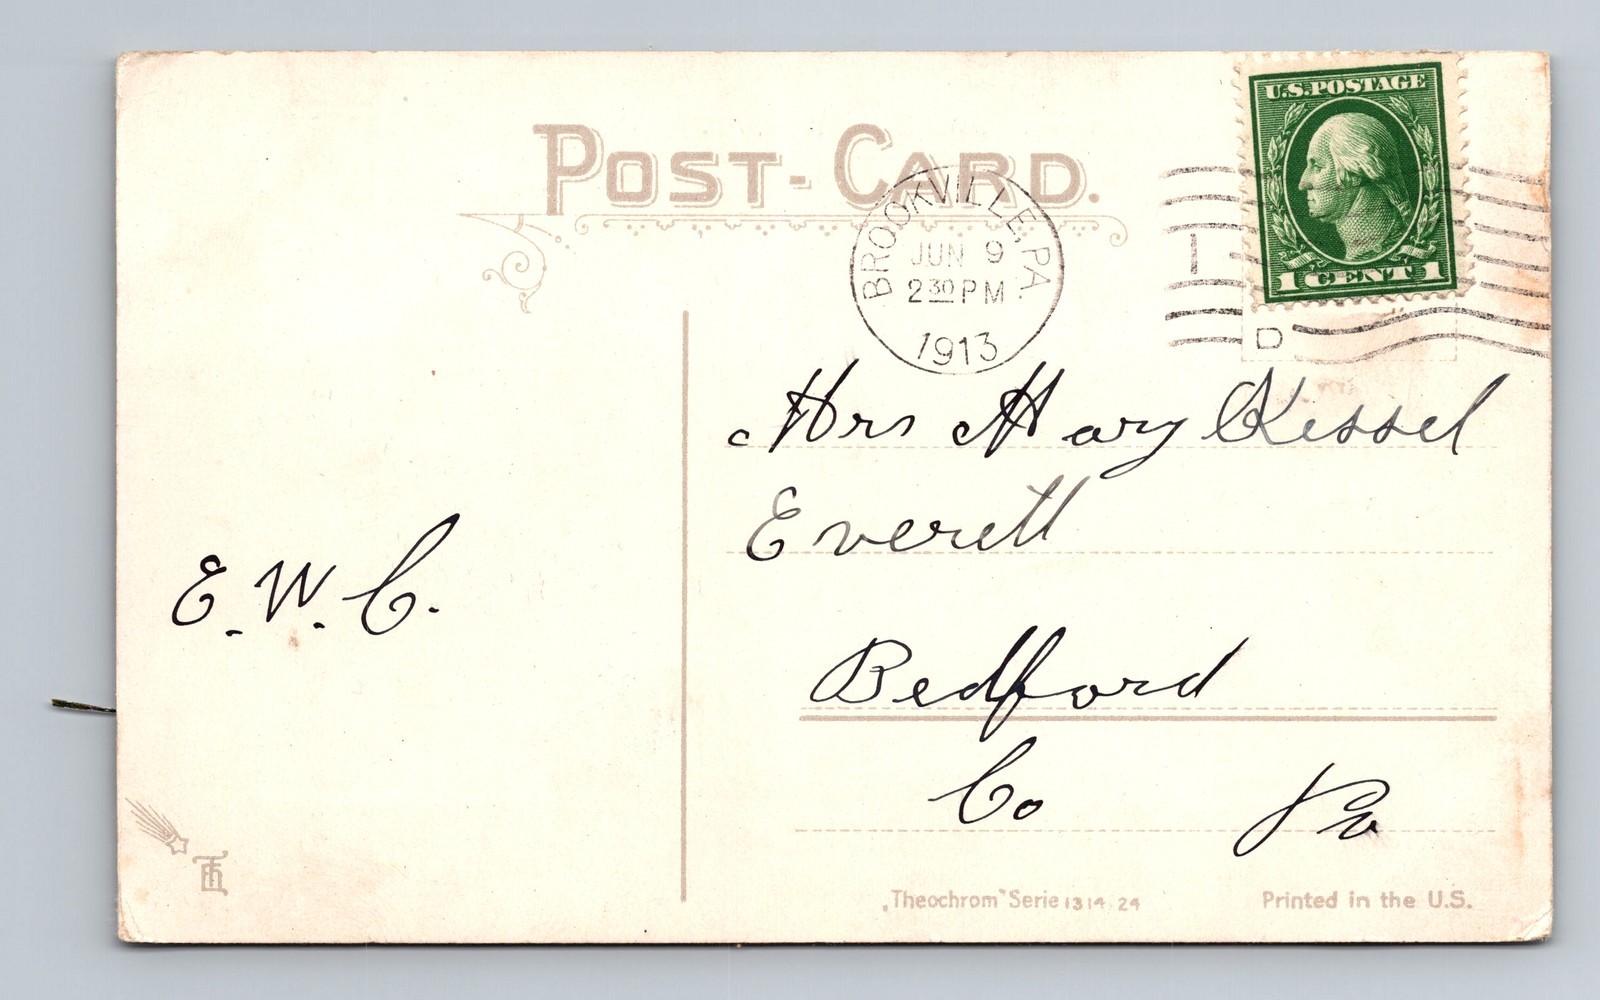 POST-CARD.
U.S.POSTAGE
1 CENT 1
BROOKVILLE, PA.
JUN 9
2 30 PM
1913
1
D
Mrs Mary Kessel
Everett
Bedford
Co Pa
E. W. C.
„Theochrom" Serie 1314. 24
Printed in the U.S.